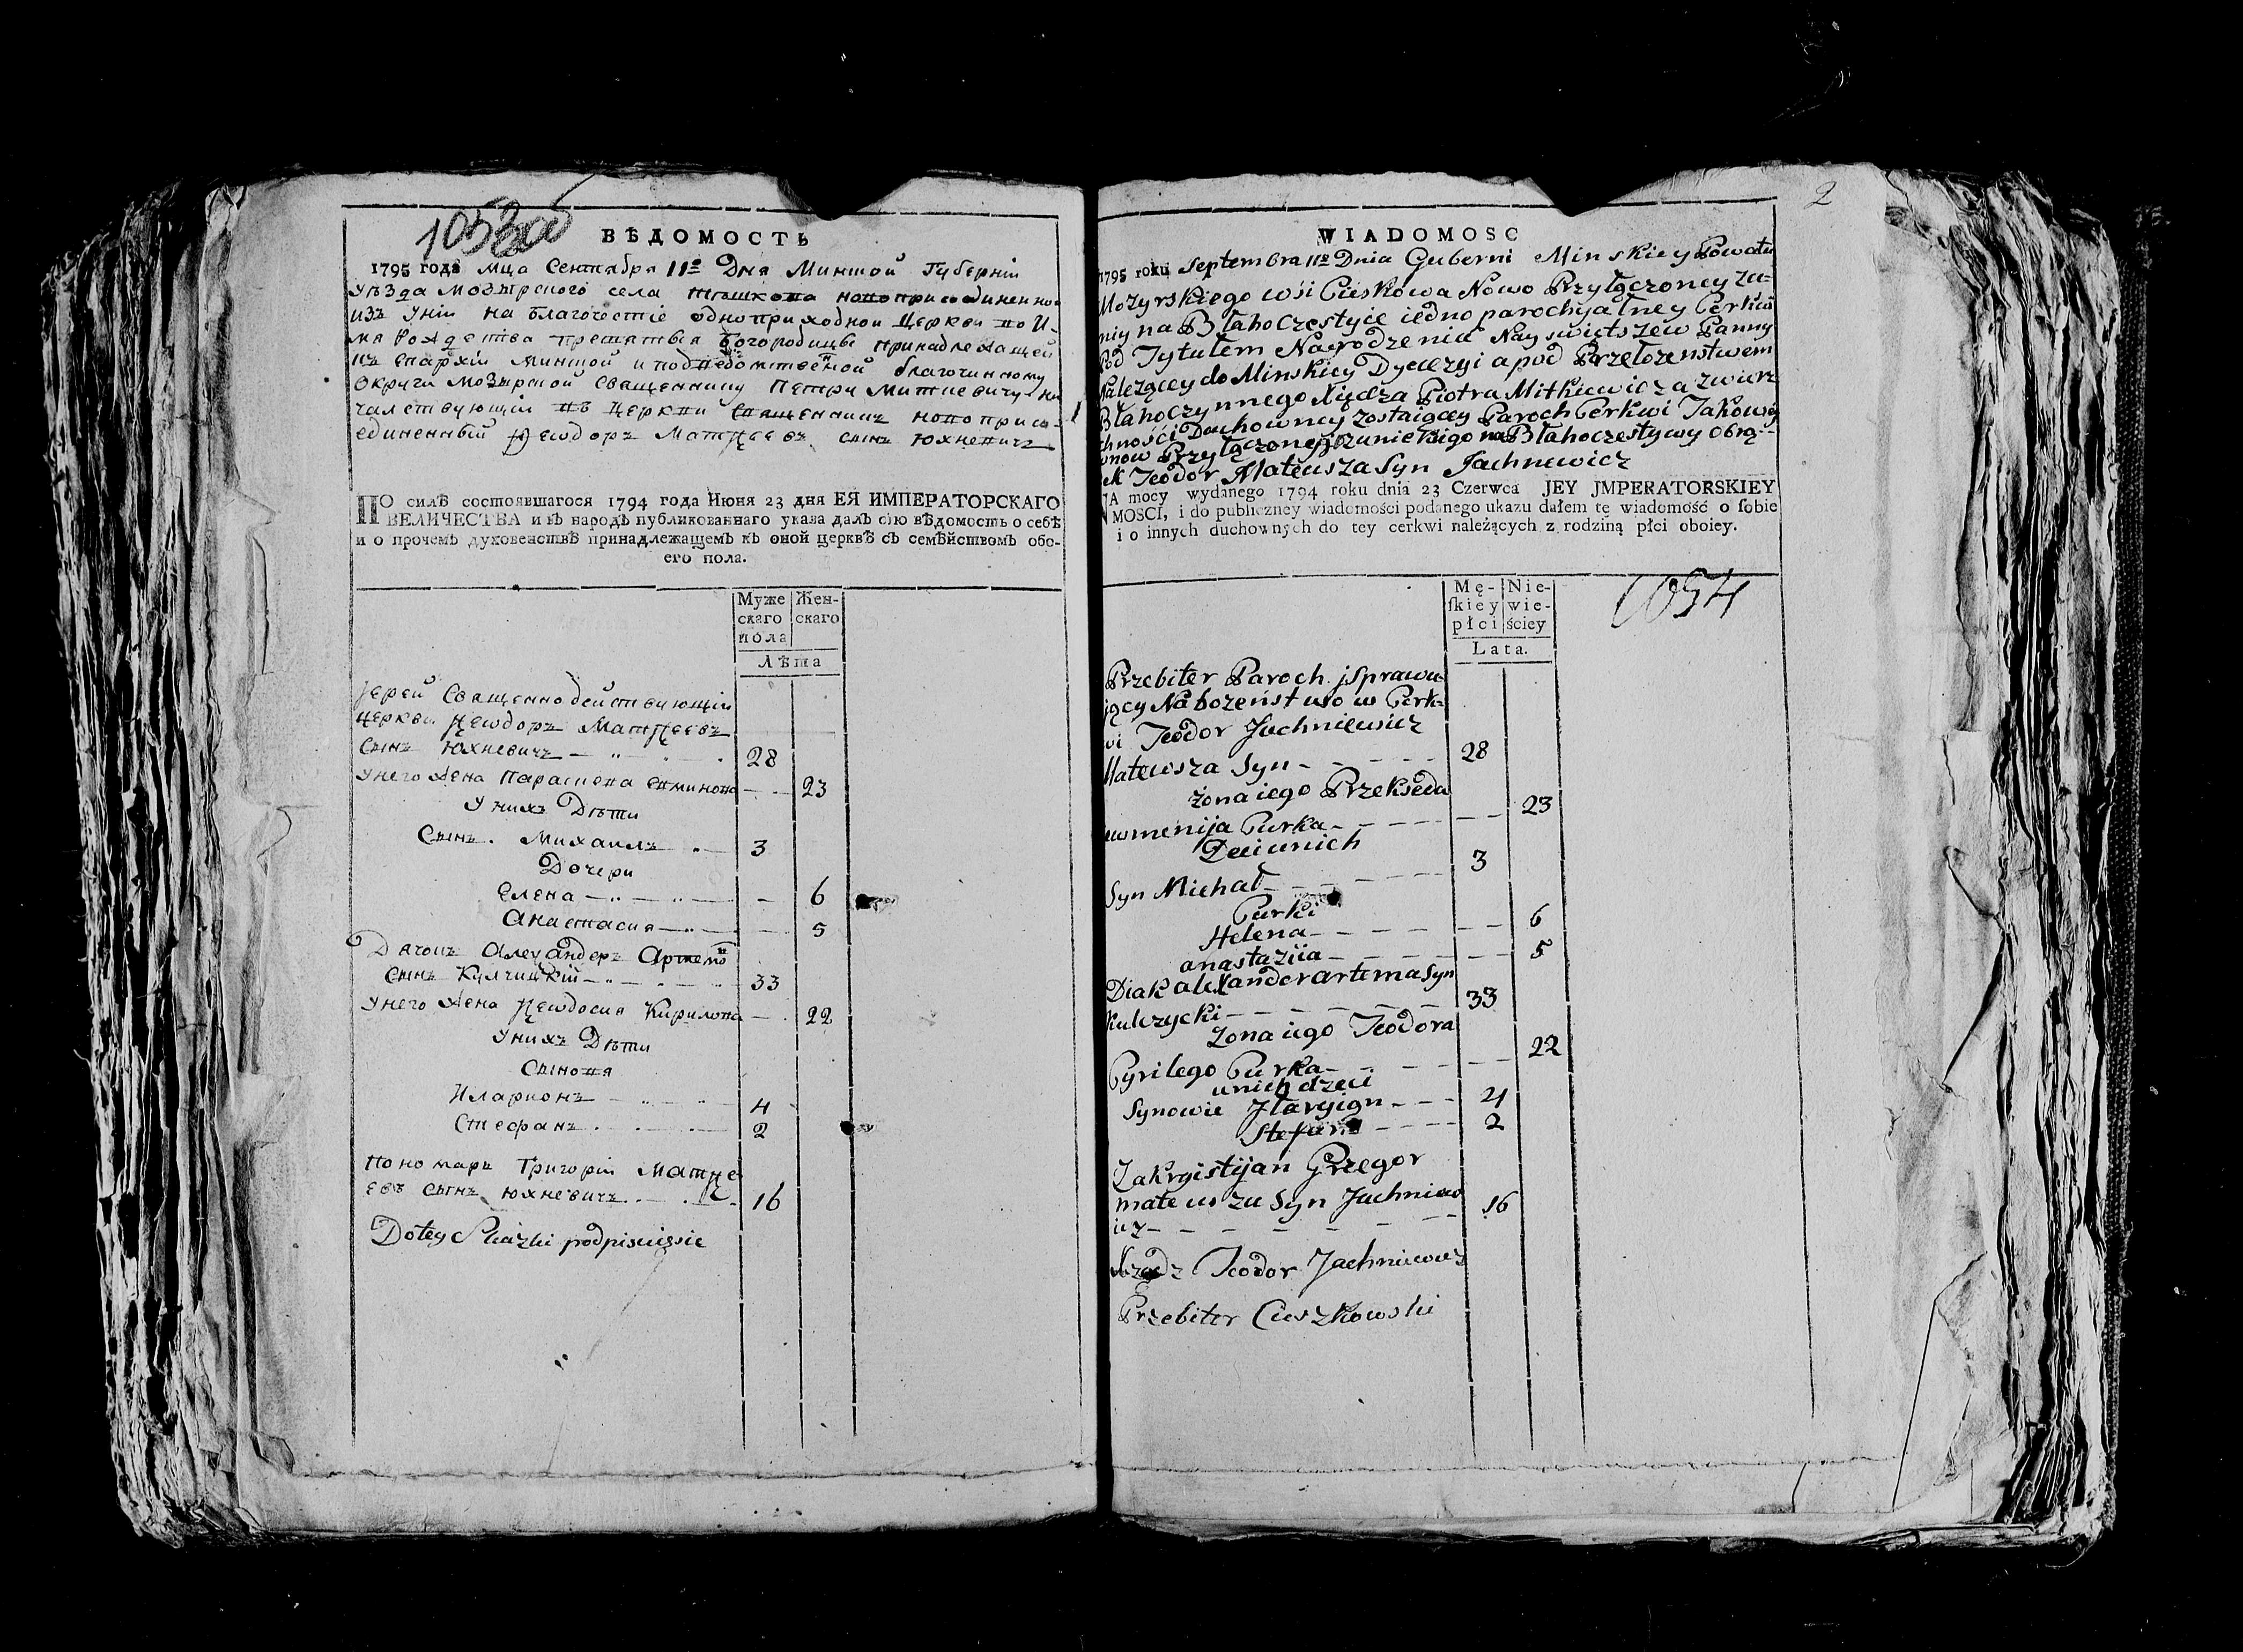 1053
ВѢДОМОСТЬ
1795 года Мца Сентября 11го Дня Минской Губерніи
Уѣзда Мозырского села новоприсоединенной
изъ Уніи на благочестіе одноприходной Церкви во И-
мя Рождества пресвятыя Богородицы принадлежащей
къ епархіи Минской и подведомственной благочинному
Округи Мозырской Священнику Петру Миткевичу на
чалствующій въ Церкви священникъ новоприсо-
единенный Ѳеодоръ Матѳеевъ сынъ Юхневичъ
ПО силѣ состоявшагося 1794 года Июня 23 дня ЕЯ ИМПЕРАТОРСКАГО
ВЕЛИЧЕСТВА и въ народъ публикованнаго указа далъ сїю вѣдомость о себѣ
и о прочемъ духовенствѣ принадлежащемъ къ оной церквѣ съ семѣйствомъ обо-
его пола.
Муже скаго пола
Жен- скаго
Лѣта
Іерей Священнодействующій
церкви Ѳеодоръ Матѳеевъ
Сынъ Юхневичъ 28
У него жена Параскева 23
У нихъ Дѣти
Сынъ. Михаилъ 3
Дочери
Елена 6
Анастасия 5
Дячокъ Алеѯандеръ Артемовъ
Сынъ Кулчицкій 33
У него жена Ѳеодосия Кирилова 22
У нихъ Дѣти
Сынова
Иларионъ 4
Стефанъ 2
Пономаръ Григорій Матѳе
евъ сынъ Юхневичъ 16
Do tey Skazki podpisuięsie
2
WIADOMOSC
1795 roku Septembra 11go Dnia Guberni Minskiey Powatu
Mozyrskiego wsi Cieskowa Nowo Przyłączoney zu-
niy na Błahoczestyie iedno parochyalney Cerkwi
Pod Tytułem Narodzenia Nayswiętszew Panny
Należącey do Minskiey Dyecezyi a pod Przełożenstwem
Błahoczynnego Xiędza Piotra Mitkiewicza zwierz
chności Duchowney zostaiącey Paroch Cerkwi Jakowey
znow Przyłączoney zunickiego na Błahoczestywy Obrą-
ek Teodor Mateusza Syn Jachnewicz
NA mocy wydanego 1794 roku dnia 23 Czerwca JEY JMPERATORSKIEY
MOSCI, i do publiczney wiadomości podanego ukazu dałem tę wiadomość o sobie
i o innych duchownych do tey cerkwi należących z rodziną płci oboiey.
1054
Mę- skiey płci
Nie- wie- ściey
Lata.
Przebiter Paroch j Sprawu-
jący Nabożeństwo w Cerk-
wi Teodor Juchniewicz
Mateusza Syn 28
żona iego Przekseda
Curka 23
Dzieci unich
Syn Michał 3
Curki
Helena 6
anastaziia 5
Diak alexander artema Syn
Kulczycki 33
żona iego Teodora
Cyrilego Curka 22
unich dzeci
Synowie Jlaryion 4
Stefan 2
Zakrystijan Grzegor
mateuszu Syn Juchniew
icz 16
Xządz Teodor Jachniewicz
Przebiter Cieszkowski